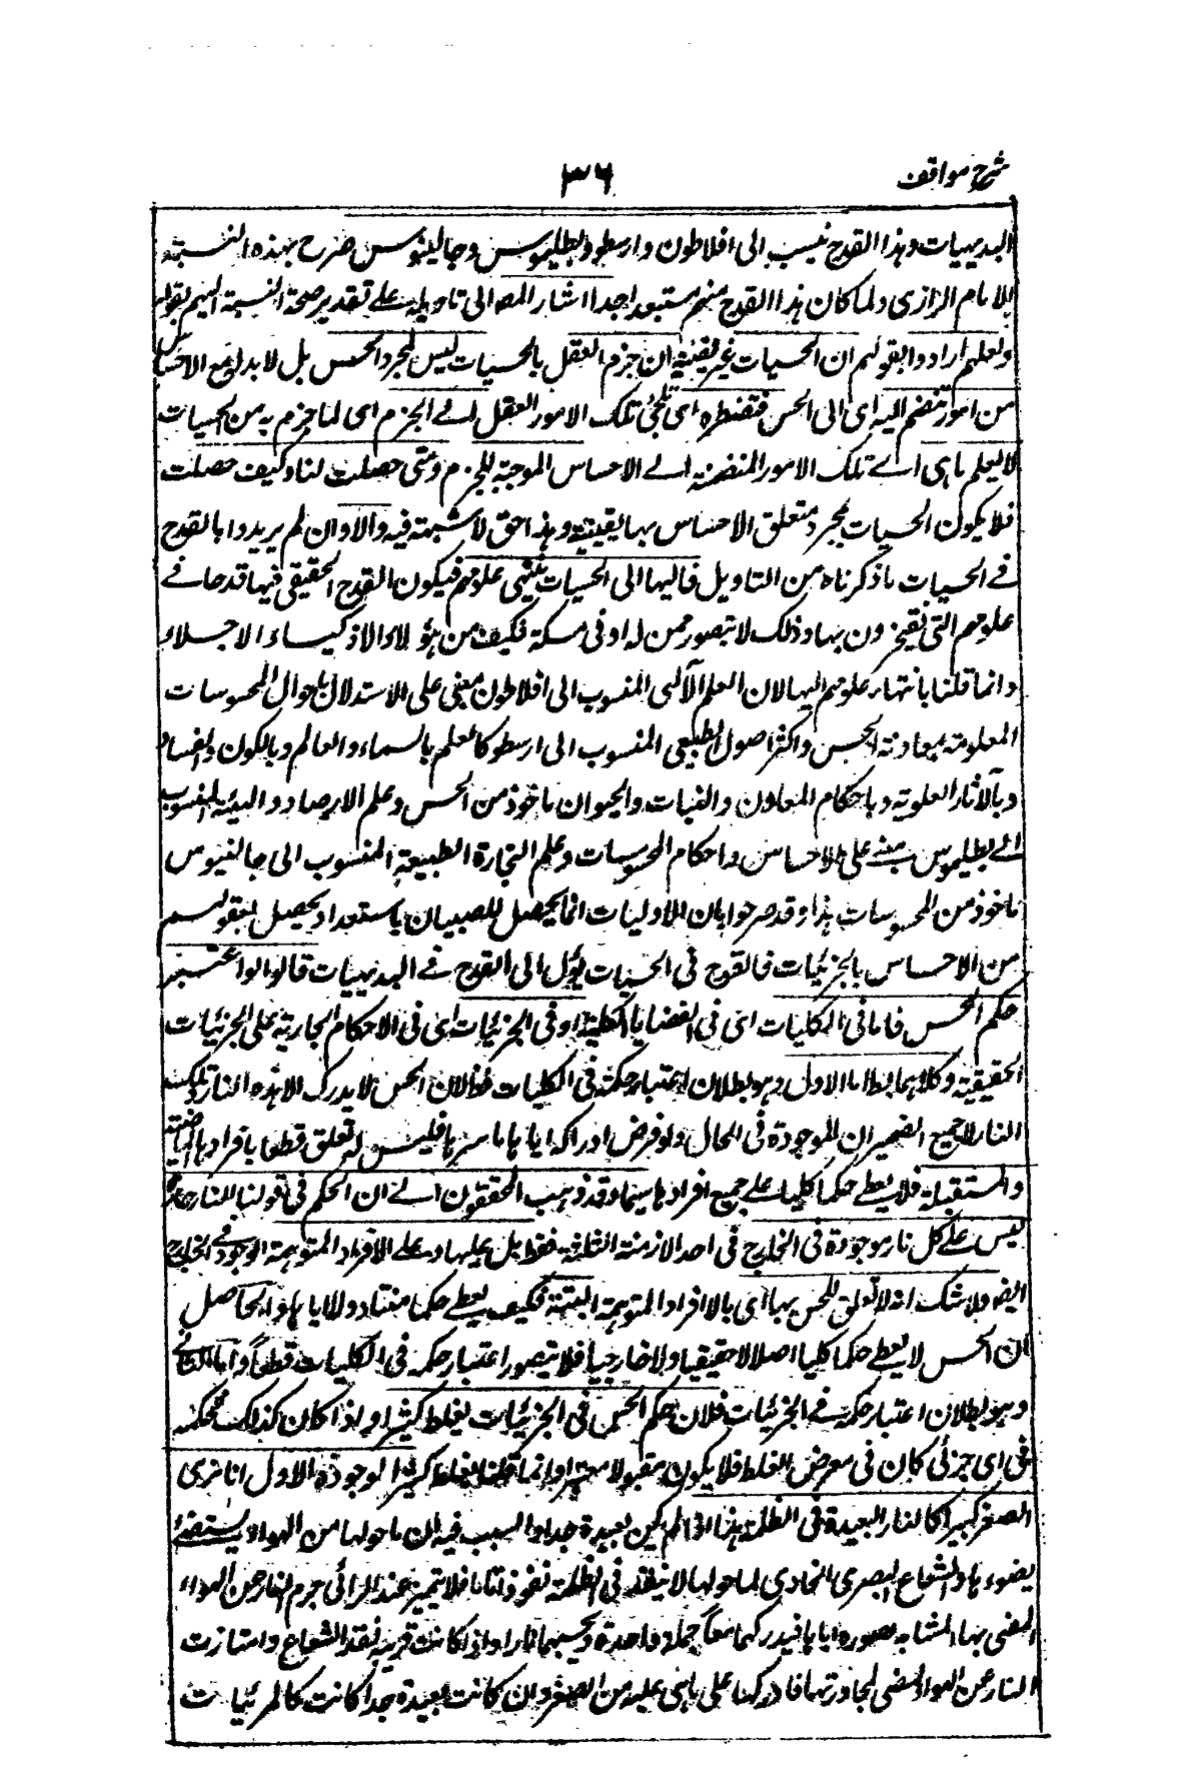 شرح مواقف
٣٦
البديهيات وهذا القدح ينسب الى افلاطون وارسطو وبطليموس وجالينوس صرح بهذه النسبة
الامام الرازى ولما كان هذا القدح منهم مستبعدا جدا اشار المص الى تاويله على تقدير صحة النسبة اليهم بقوله
ولعلهم ارادوا بقولهم ان الحسيات غير يقينية ان جزم العقل بالحسيات ليس لمجرد الحس بل لا بد له مع الاحساس
من امور تنضم اليه اى الى الحس فتضطره اى تلجئ تلك الامور العقل الى الجزم اى لما جزم به من الحسيات
لا يعلم ما هى اى تلك الامور المنضمة الى الاحساس الموجبة للجزم ومتى حصلت لنا وكيف حصلت
فلا يكون الحسيات بمجرد متعلق الاحساس بها يقينية وهذا حق لا شبهة فيه والا وان لم يريدوا بالقدح
فى الحسيات ما ذكرناه من التاويل فاليها الى الحسيات ينتهى علومهم فيكون القدح الحقيقى فيها قدحا فى
علومهم التى يفتخرون بها وذلك لا يتصور ممن له ادنى مسكة فكيف من هؤلاء الاذكياء الاجلاء
وانما قلنا بانتهاء علومهم اليها لان العلم الآلهى المنسوب الى افلاطون مبنى على الاستدلال باحوال المحسوسات
المعلومة بمعاونة الحس واكثر اصول الطبيعى المنسوب الى ارسطو كالعلم بالسماء والعالم وبالكون والفساد
وبآلاثار العلوية وباحكام المعادن والنبات والحيوان ماخوذ من الحس وعلم الارصاد والهيئة المنسوب
الى بطليموس مبنى على الاحساس واحكام المحسوسات وعلم التجارة الطبيعة المنسوب الى جالنيوس
ماخوذ من المحسوسات هذا وقد صرحوا بان الاوليات انما يحصل للصبيان باستعداد يحصل لعقولهم
من الاحساس بالجزئيات فالقدح فى الحسيات يؤل الى القدح فى البديهيات قالوا لو اعتبر
حكم الحس فاما فى الكليات اى فى القضايا الكلية او فى الجزئيات اى فى الاحكام الجارية على الجزئيات
الحقيقية وكلاهما بط اما الاول وهو بطلان اعتبار حكمه فى الكليات فظ لان الحس لا يدرك الا هذه النار وتلك
النار لا جميع النيران الموجودة فى الحال ولو فرض ادراكه اياها باسرها فليس له تعلق قطعا بافرادها الماضية
والمستقبلة فلا يعطى حكما كليا على جميع افرادها سيما وقد ذهب المحققون الى ان الحكم فى قولنا النار حارة
ليس على كل نار موجودة فى الخارج فى احد الازمنة الثلثة فقط بل عليها وعلى الافراد المتوهمة الوجود فى الخارج
ايضا ولا شك انه لا تعلق للحس بها اى بالافراد المتوهمة البتة فكيف يعطى حكما متناولا اياها والحاصل
ان الحس لا يعطى حكما كليا اصلا لا حقيقيا ولا خارجيا فلا يتصور اعتبار حكمه فى الكليات قطعاً واما الثانى
وهو بطلان اعتبار حكمه فى الجزئيات فلان حكم الحس فى الجزئيات يغلط كثيرا واذا كان كذلك فحكمه
فى اى جزئى كان فى معرض الغلط فلا يكون مقبولا معتبرا وانما قلنا يغلط كثيرا لوجوه الاول انا نرى
الصغير كبيرا كالنار البعيدة فى الظلمة هذا اذا لم يكن بعيدة جدا والسبب فيه ان ما حولها من الهواء يستضئ
بضوءها والشعاع البصرى المحاذى لما حولها لا ينفذ فى الظلمة نفوذا تاما فلا يتميز عند الرائى جرم النار عن الهواء
المضى بها المشابه بصوره اياها فيدركهما معاً جملة واحدة ويحسبهما نارا واذا كانت قريبة نفذ الشعاع وامتازت
النار عن الهواء المضى لمجاورتها فادركنا على ما هى عليه من الصغر وان كانت بعيدة جدا كانت كالمرئيات